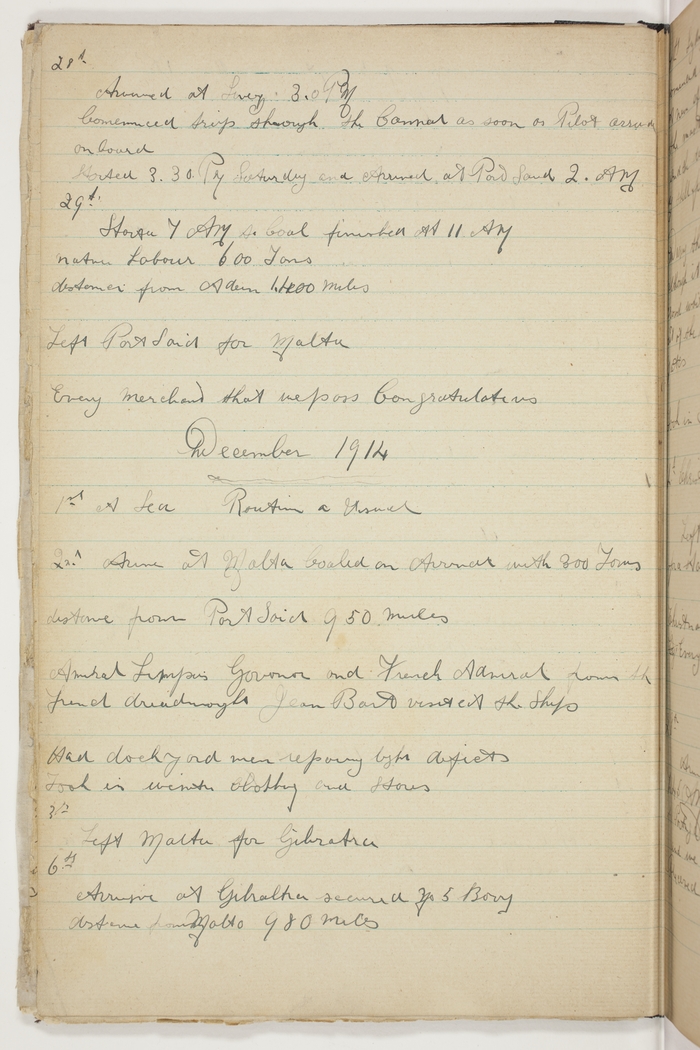 28th
Arrived at Suez. 3.0 PM
Commenced trip through the Cannal as soon as Pilot arrived
on board
Started 3.30 PM Saturday and Arrived at Port Said 2. AM
29th
Started 7 AM to Coal finished at 11 AM
native Labour 600 Tons
distance from Aden 1400 miles
Left Port Said for Malta
Every Merchant that we pass Congratulatives
December 1914
1st At Sea Routine a Usual
2nd Arrive at Malta Coaled on Arrival with 300 Tons
distance from Port Said 950 miles
Admiral Limpus Govonor and French Admiral from th
french dreadnought Jean Bart visited the Ship
Had dockyard men repairing light defects
Took in winter clothing and Stores
3rd
Left Malta for Gibratra
6th
Arrive at Gibraltra secured No 5 Bouy
distance from Malta 980 miles